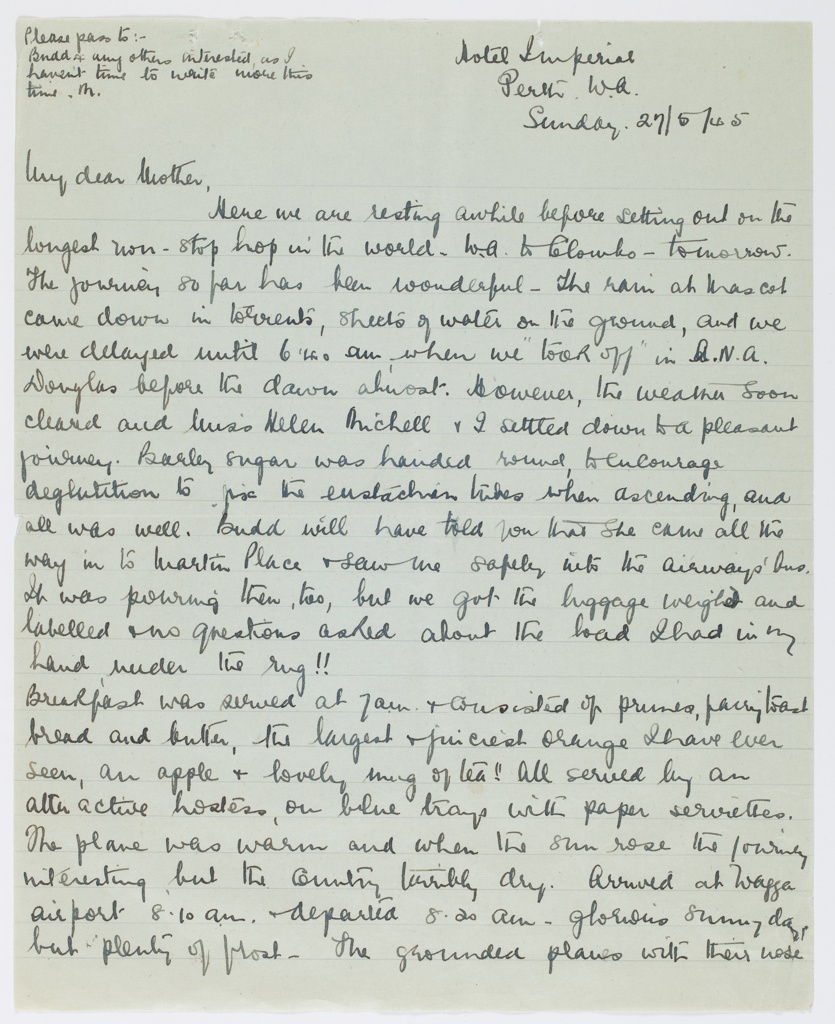 Please pass to:-
Budd & any others interested, as I
haven't time to write more this
time. M.
Hotel Imperial
Perth. W.A.
Sunday. 27/5/45
My dear Mother,
Here we are resting awhile before setting out on the
longest non-stop hop in the world - W.A. to Colombo - tomorrow.
The journey so far has been wonderful - The rain at Mascot
came down in torrents, sheets of water on the ground, and we
were delayed until 6.40 am, when we "took off" in A.N.A.
Douglas before the dawn almost. However, the weather soon
cleared and Miss Helen Michell & I settled down to a pleasant
journey. Barley sugar was handed round, to encourage
deglutition to fix the eustachian tubes when ascending, and
all was well. Budd will have told you that she came all the
way in to Martin Place & saw me safely into the airways' bus.
It was pouring then, too, but we got the luggage weighed and
labelled & no questions asked about the load I had in my
hand under the rug!!
Breakfast was served at 7am. & consisted of prunes, toast
bread and butter, the largest & juiciest orange I have ever
seen, an apple & lovely mug of tea!! All served by an
attractive hostess, on blue trays with paper serviettes.
The plane was warm and when the sun rose the journey
interesting but the country terribly dry. Arrived at Wagga
airport 8.10 am. & departed 8.20 am - glorious sunny day,
but plenty of frost - The grounded planes with their nose